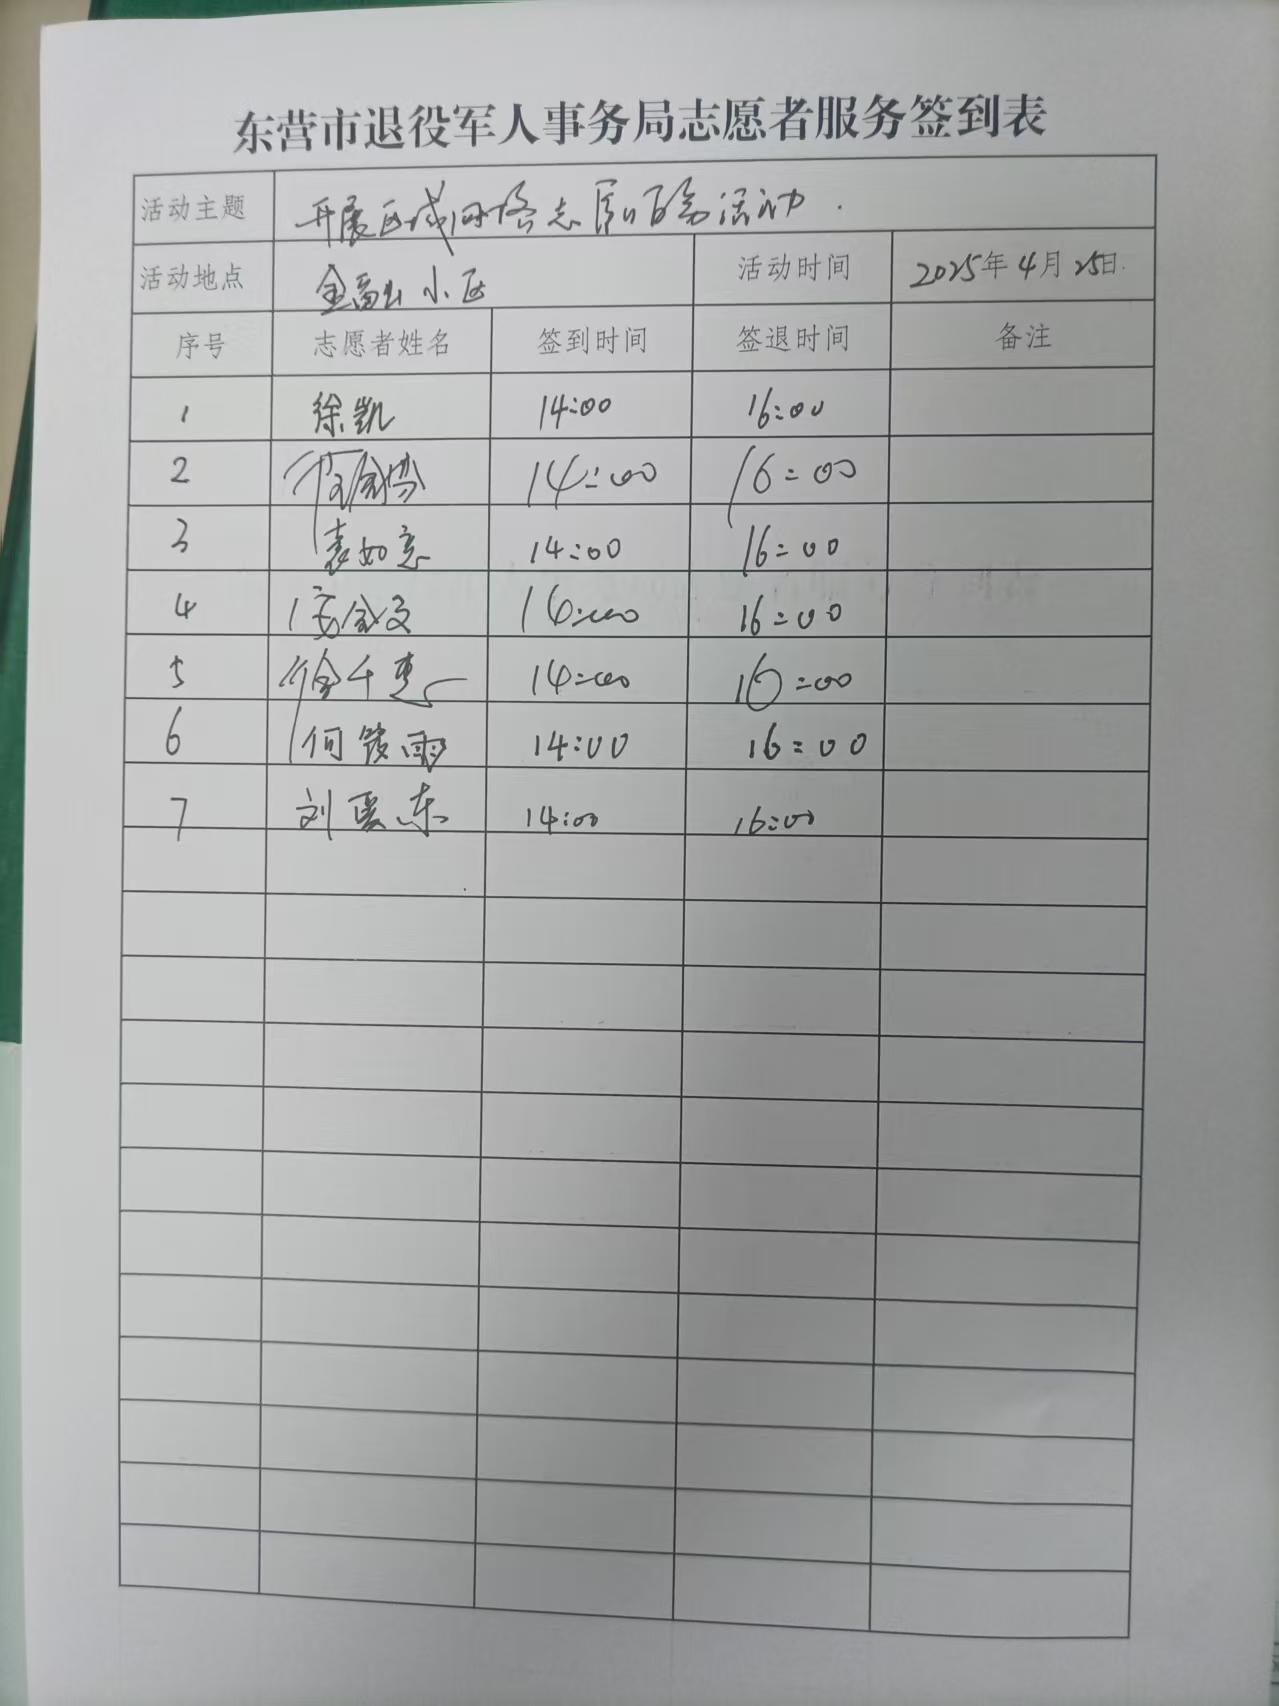 东营市退役军人事务局志愿者服务签到表
活动主题 开展区域网格志愿服务活动.
活动地点 金 小区 活动时间 2025年4月25日.
序号 志愿者姓名 签到时间 签退时间 备注
1 徐凯 14:00 16:00
2 14:00 16:00
3 袁如意 14:00 16:00
4 14:00 16:00
5 徐千惠 14:00 16:00
6 何筱雨 14:00 16:00
7 刘 东 14:00 16:00